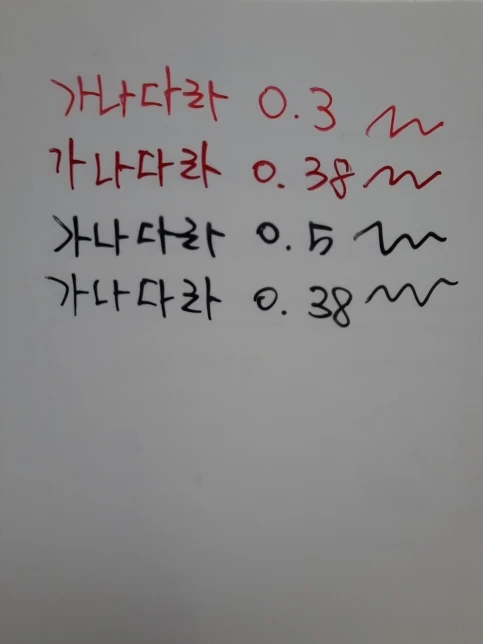 가나다라 0.3
가나다라 0.38
가나다라 0.5
가나다라 0.38